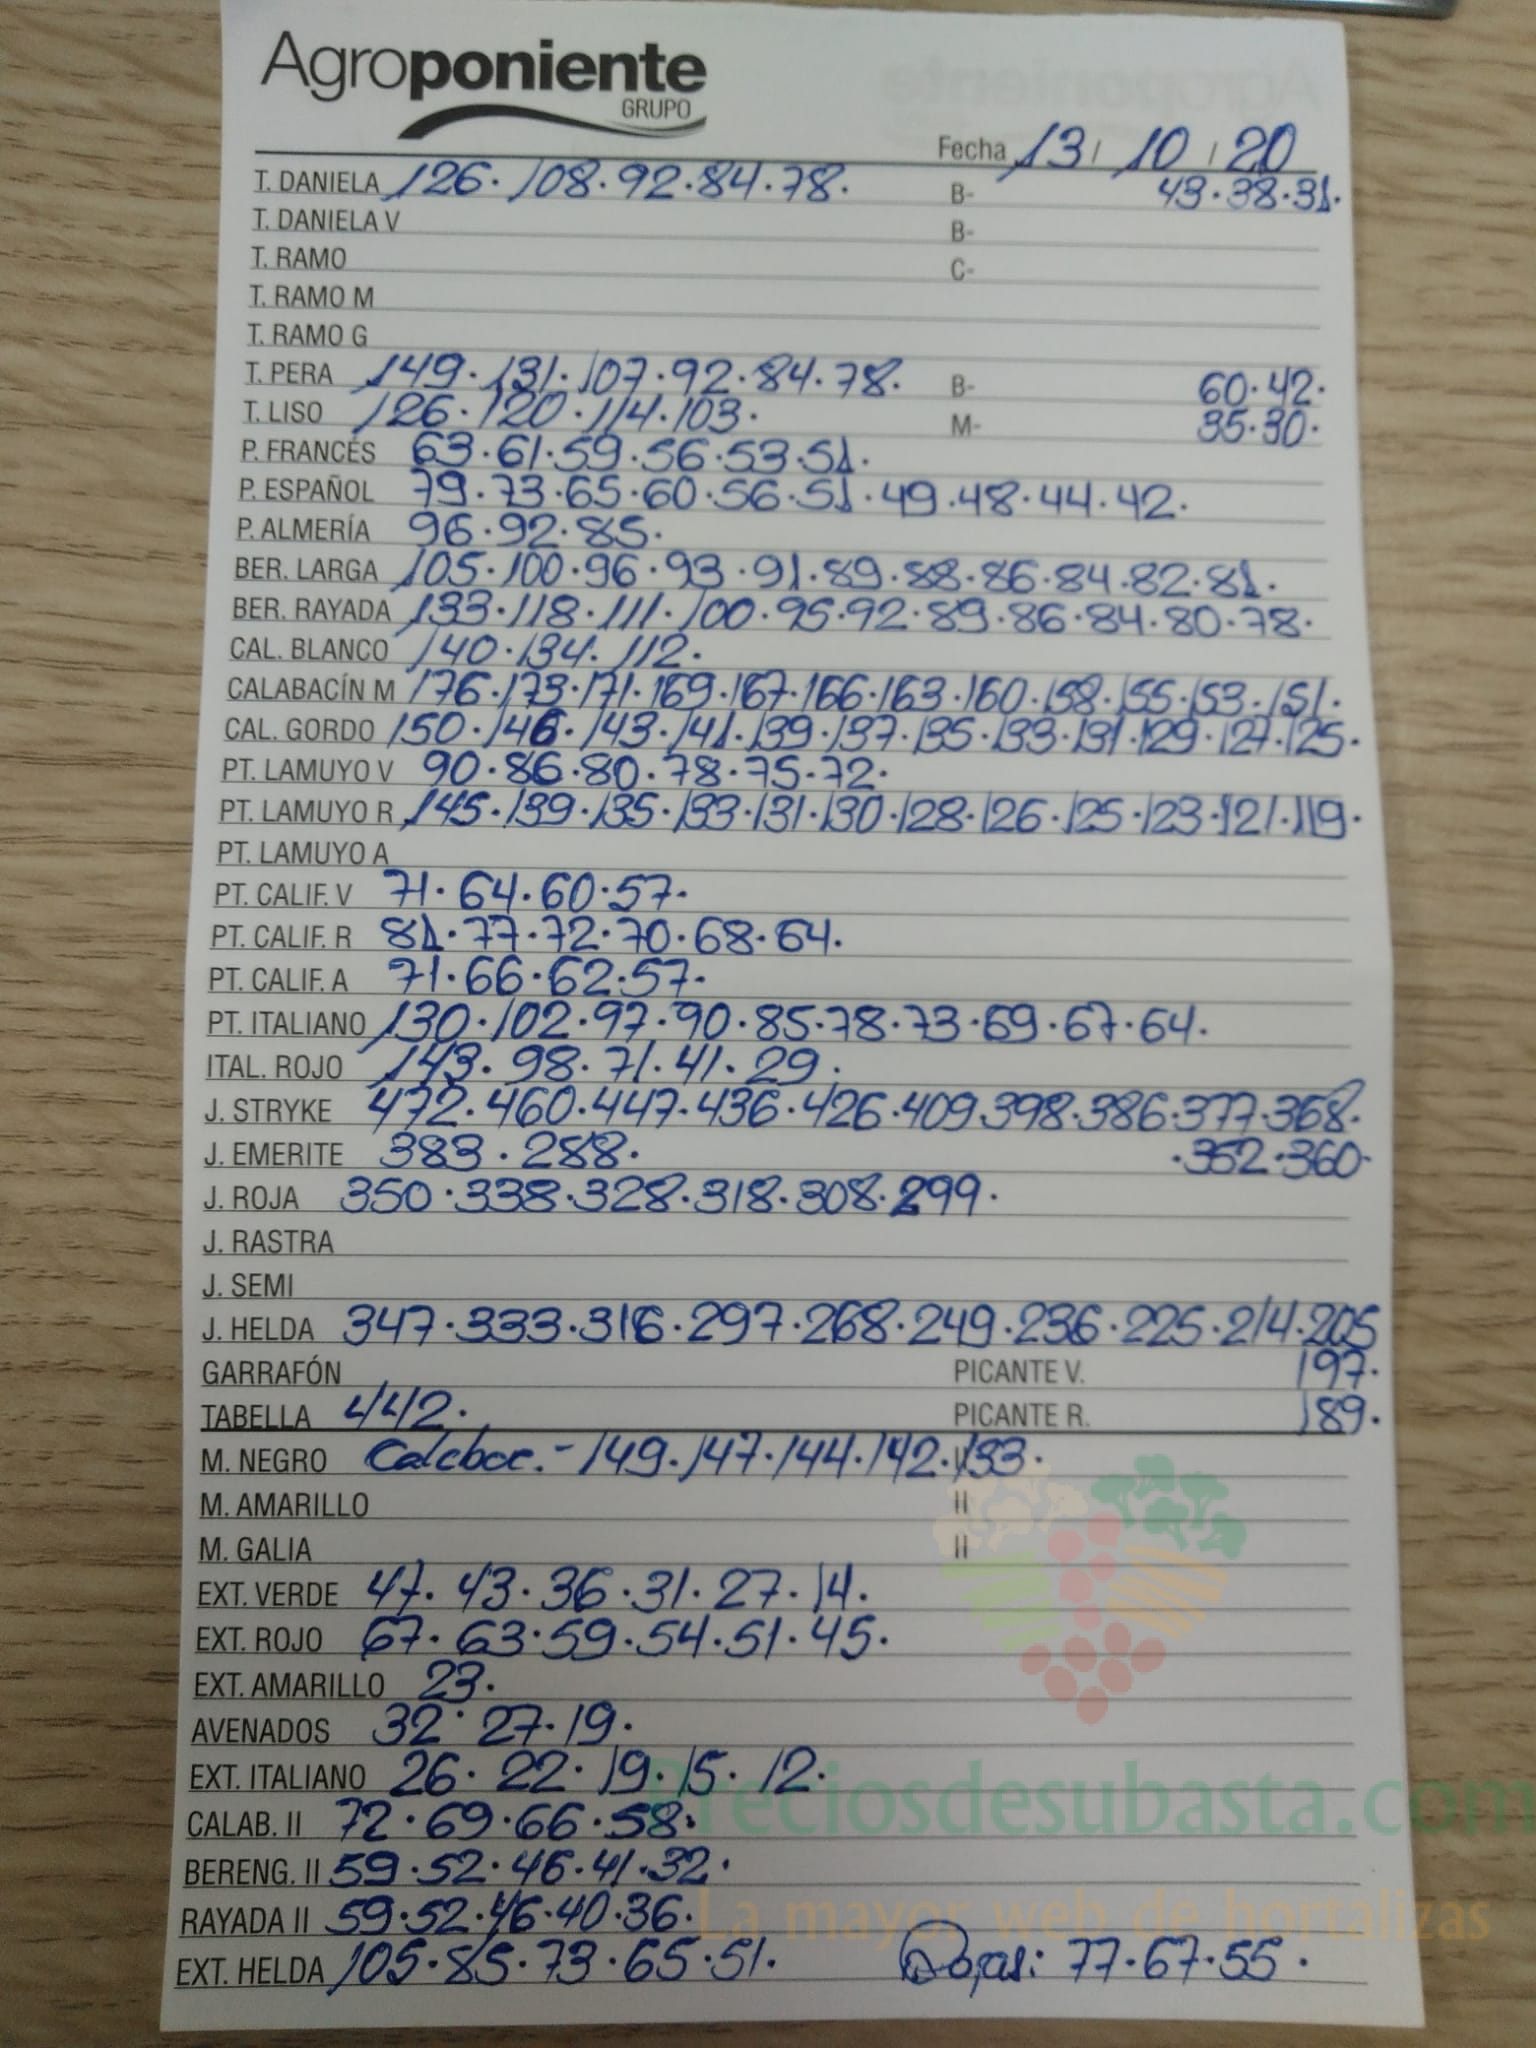 Agroponiente
GRUPO
Fecha 13 / 10 / 20
T. DANIELA 126. 108. 92. 84. 78. B- 43. 38. 31.
T. DANIELA V B-
T. RAMO C-
T. RAMO M
T. RAMO G
T. PERA 149. 131. 107. 92. 84. 78. B- 60. 42.
T. LISO 126. 120. 114. 103. M- 35. 30.
P. FRANCÉS 63. 61. 59. 56. 53. 51.
P. ESPAÑOL 79. 73. 65. 60. 56. 51. 49. 48. 44. 42.
P. ALMERÍA 96. 92. 85.
BER. LARGA 105. 100. 96. 93. 91. 89. 88. 86. 84. 82. 81.
BER. RAYADA 133. 118. 111. 100. 95. 92. 89. 86. 84. 80. 78.
CAL. BLANCO 140. 134. 112.
CALABACÍN M 176. 173. 171. 169. 167. 166. 163. 160. 158. 155. 153. 151.
CAL. GORDO 150. 146. 143. 141. 139. 137. 135. 133. 131. 129. 127. 125.
PT. LAMUYO V 90. 86. 80. 78. 75. 72.
PT. LAMUYO R 145. 139. 135. 133. 131. 130. 128. 126. 125. 123. 121. 119.
PT. LAMUYO A
PT. CALIF. V 71. 64. 60. 57.
PT. CALIF. R 81. 77. 72. 70. 68. 64.
PT. CALIF. A 71. 66. 62. 57.
PT. ITALIANO 130. 102. 97. 90. 85. 78. 73. 69. 67. 64.
ITAL. ROJO 143. 98. 71. 41. 29.
J. STRYKE 472. 460. 447. 436. 426. 409. 398. 386. 377. 368.
J. EMERITE 383. 288. . 352. 360.
J. ROJA 350. 338. 328. 318. 308. 299.
J. RASTRA
J. SEMI
J. HELDA 347. 333. 316. 297. 268. 249. 236. 225. 214. 205
GARRAFÓN PICANTE V. 197.
TABELLA 442. PICANTE R. 189.
M. NEGRO 149. 147. 144. 142. 133.
M. AMARILLO II
M. GALIA II
EXT. VERDE 47. 43. 36. 31. 27. 14.
EXT. ROJO 67. 63. 59. 54. 51. 45.
EXT. AMARILLO 23.
AVENADOS 32. 27. 19.
EXT. ITALIANO 26. 22. 19. 15. 12.
Preciosdesubasta.com
CALAB. II 72. 69. 66. 58.
BERENG. II 59. 52. 46. 41. 32.
La mayor web de hortalizas
RAYADA II 59. 52. 46. 40. 36.
EXT. HELDA 105. 85. 73. 65. 51. Rojas: 77. 67. 55.